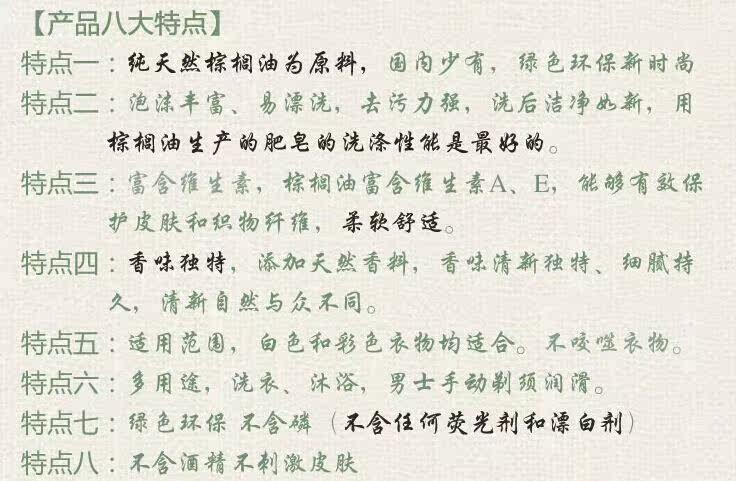 【产品八大特点】
特点一：纯天然棕榈油为原料，国内少有，绿色环保新时尚
特点二：泡沫丰富、易漂洗，去污力强，洗后洁净如新，用
棕榈油生产的肥皂的洗涤性能是最好的。
特点三：富含维生素，棕榈油富含维生素A、E，能够有效保
护皮肤和织物纤维，柔软舒适。
特点四：香味独特，添加天然香料，香味清新独特、细腻持
久，清新自然与众不同。
特点五：适用范围，白色和彩色衣物均适合。不咬噬衣物。
特点六：多用途，洗衣、沐浴，男士手动剃须润滑。
特点七：绿色环保 不含磷（不含任何荧光剂和漂白剂）
特点八：不含酒精不刺激皮肤